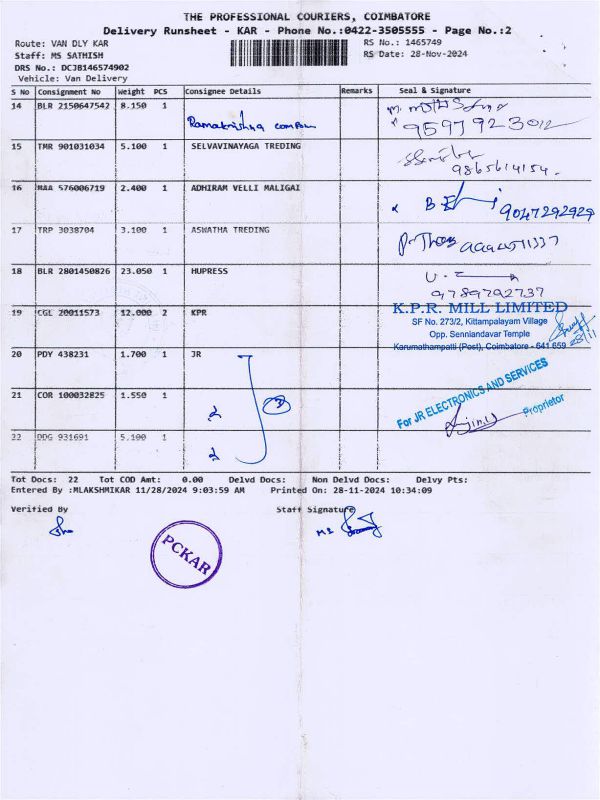 THE PROFESSIONAL COURIERS, COIMBATORE
Delivery Runsheet - KAR - Phone No.:0422-3505555 - Page No.:2
Route: VAN DLY KAR RS No.: 1465749
Staff: MS SATHISH RS Date: 28-Nov-2024
DRS No.: DCJB146574902
Vehicle: Van Delivery
S No Consignment No Weight PCS Consignee Details Remarks Seal & Signature
14 BLR 2150647542 8.150 1
Ramakrishna
9597923012
15 TMR 901031034 5.100 1 SELVAVINAYAGA TREDING
9865614154
16 MAA 576006719 2.400 1 ADHIRAM VELLI MALIGAI
9047292929
17 TRP 3038704 3.100 1 ASWATHA TREDING
18 BLR 2801450826 23.050 1 HUPRESS
9789792737
K.P.R. MILL LIMITED
SF No. 273/2, Kittampalayam Village
Opp. Senniandavar Temple
Karumathampatti (Post), Coimbatore - 641 659
28/11
19 CGL 20011573 12.000 2 KPR
20 PDY 438231 1.700 1 JR
21 COR 100032825 1.550 1
22 DDG 931691 5.100 1
For JR ELECTRONICS AND SERVICES
Proprietor
Tot Docs: 22 Tot COD Amt: 0.00 Delvd Docs: Non Delvd Docs: Delvy Pts:
Entered By :MLAKSHMIKAR 11/28/2024 9:03:59 AM Printed On: 28-11-2024 10:34:09
Verified By Staff Signature
PCKAR